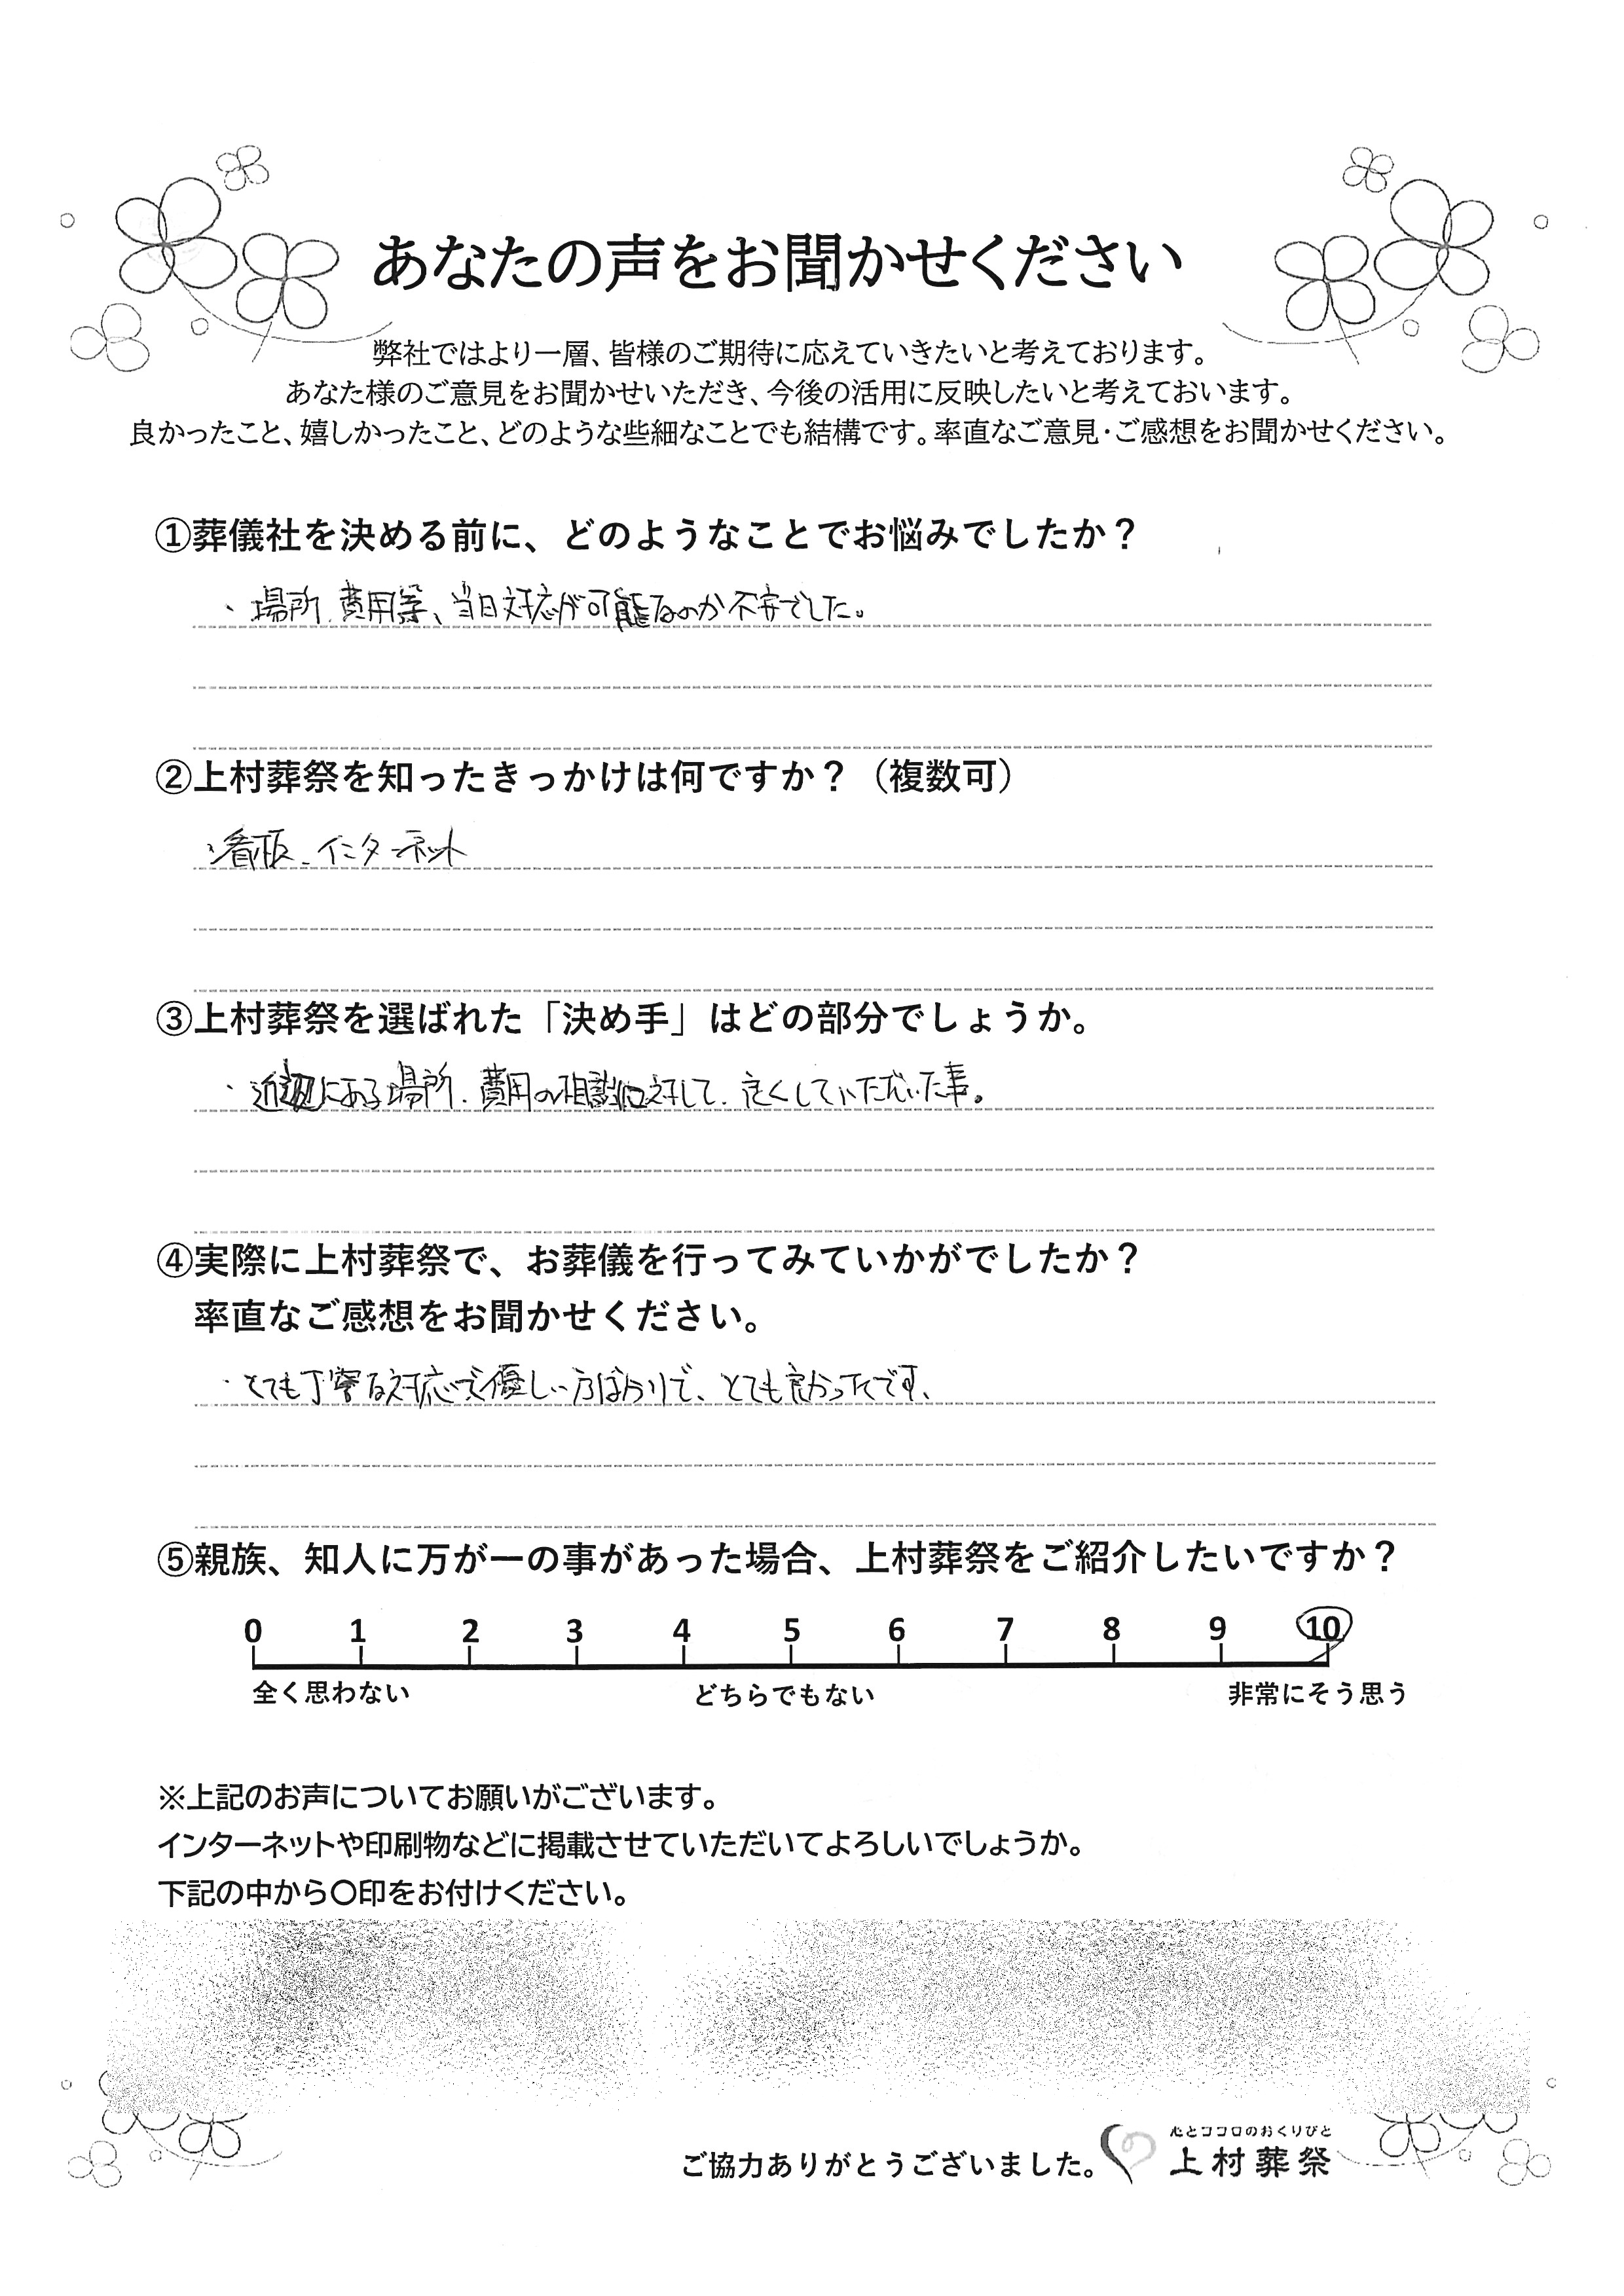 あなたの声をお聞かせください
弊社ではより一層、皆様のご期待に応えていきたいと考えております。
あなた様のご意見をお聞かせいただき、今後の活用に反映したいと考えておいます。
良かったこと、嬉しかったこと、どのような些細なことでも結構です。率直なご意見・ご感想をお聞かせください。
①葬儀社を決める前に、どのようなことでお悩みでしたか？
・場所、費用等、当日対応が可能なのか不安でした。
②上村葬祭を知ったきっかけは何ですか？（複数可）
・看板、インターネット
③上村葬祭を選ばれた「決め手」はどの部分でしょうか。
・近辺にある場所、費用の相談に対して、良くしていただいた事。
④実際に上村葬祭で、お葬儀を行ってみていかがでしたか？
率直なご感想をお聞かせください。
・とても丁寧な対応で優しい方ばかりで、とても良かったです、
⑤親族、知人に万が一の事があった場合、上村葬祭をご紹介したいですか？
0 1 2 3 4 5 6 7 8 9 10
全く思わない どちらでもない 非常にそう思う
※上記のお声についてお願いがございます。
インターネットや印刷物などに掲載させていただいてよろしいでしょうか。
下記の中から〇印をお付けください。
心とココロのおくりびと
ご協力ありがとうございました。 上村葬祭